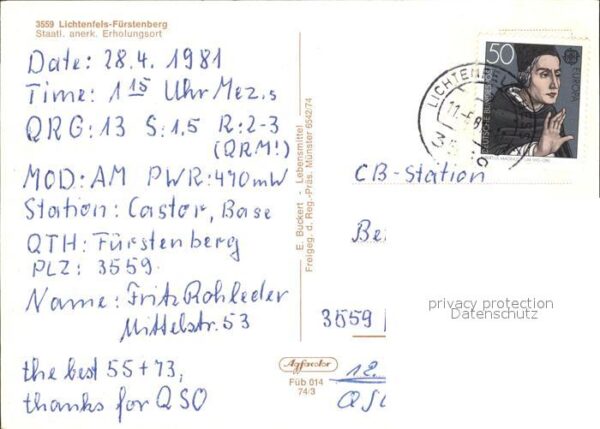 3559 Lichtenfels-Fürstenberg
Staatl. anerk. Erholungsort
Date: 28.4. 1981
Time: 1 15 Uhr Mez.s
QRG: 13 S: 1,5 R: 2-3
(QRM!)
MOD: AM PWR: 470mW
Station: Castor, Base
QTH: Fürstenberg
PLZ: 3559
Name: Fritz Rohleder
Mittelstr. 53
the best 55 + 73,
thanks for QSO
E. Buckert - Lebensmittel
Freigeg. d. Reg.-Präs. Münster 6542/74
Agfacolor
Füb 014
74/3
50
EUROPA
LICHTENFEL
CB-Station
Be
3559
privacy protection
Datenschutz
12.
QSO